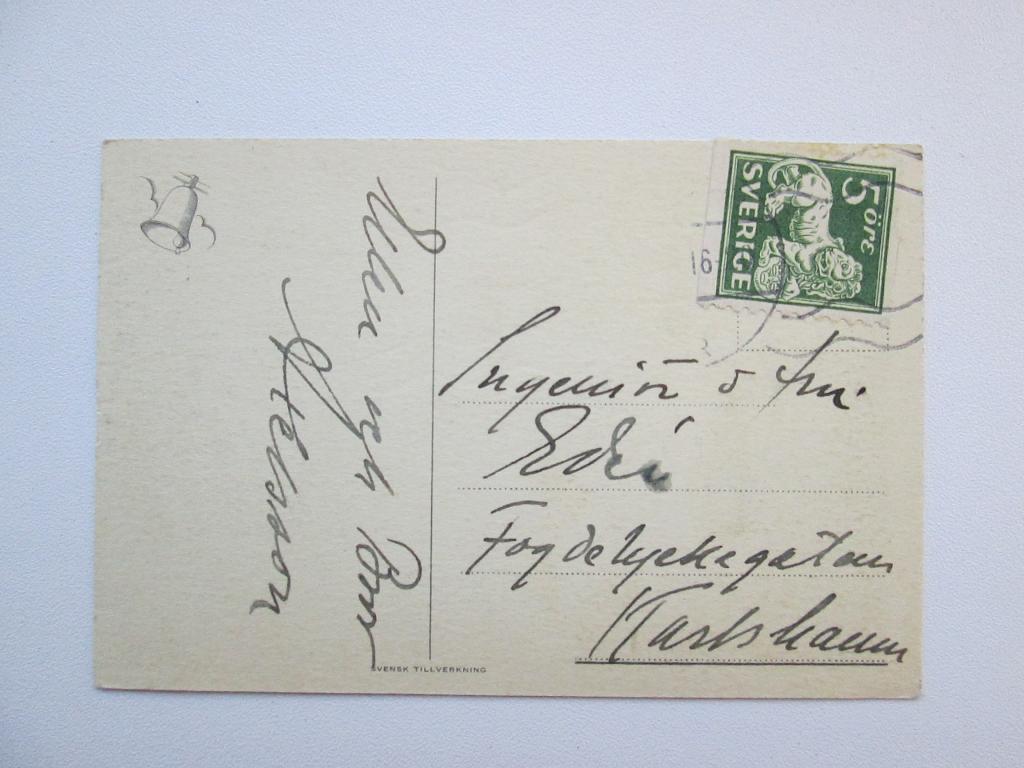 5 ÖRE
SVERIGE
16
Ingeniör o fru
Edén
Fogdelyckegatan
Karlshamn
Ulla och
Axelsson
SVENSK TILLVERKNING